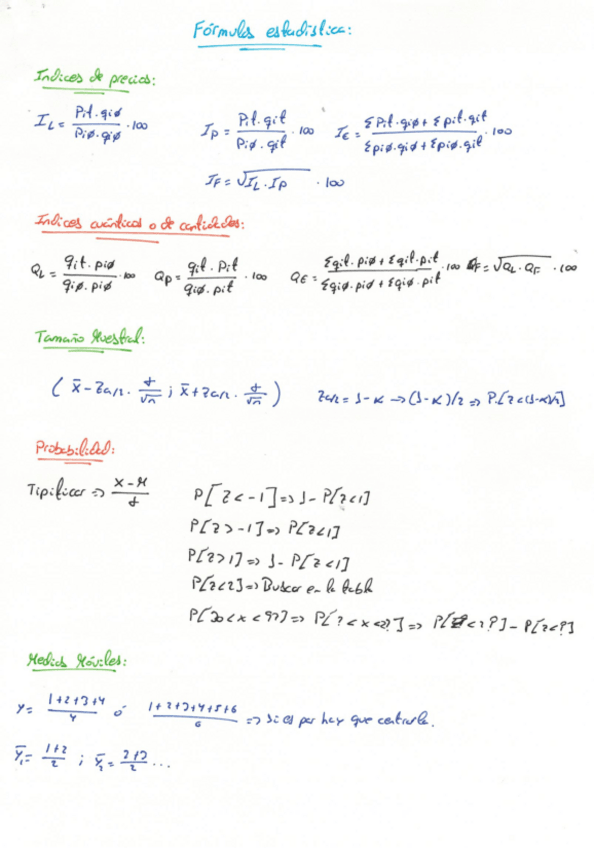 Fórmulas estadística:
Indices de precios:
I_L = Pit·qiø / Piø·qiø · 100   I_P = Pit·qit / Piø·qit · 100   I_E = Σpit·qiø + Σpit·qit / Σpiø·qiø + Σpiø·qit · 100
I_F = √I_L·I_P · 100
Indices cuánticos o de cantidades:
Q_L = qit·piø / qiø·piø · 100   Q_P = qit·pit / qiø·pit · 100   Q_E = Σqit·piø + Σqit·pit / Σqiø·piø + Σqiø·pit · 100   QF = √Q_L·Q_F · 100
Tamaño Muestral:
( x̄ - Zα/2 · σ/√n ; x̄ + Zα/2 · σ/√n )   Zα/2 = 1-α → (1-α)/2 ⇒ P[Z<(1-α)/2]
Probabilidad:
Tipificar ⇒ x-M / σ   P[Z<-1] ⇒ 1-P[Z<1]
P[Z>-1] ⇒ P[Z<1]
P[Z>1] ⇒ 1-P[Z<1]
P[Z<2] ⇒ Buscar en la tabla
P[30<x<97] ⇒ P[?<x<?] ⇒ P[Z<?] - P[Z<?]
Medias Móviles:
Y = 1+2+3+4 / 4 ó 1+2+3+4+5+6 / 6 ⇒ Si es par hay que centrarla.
Ȳ₁ = 1+2 / 2 ; Ȳ₂ = 2+3 / 2 ...